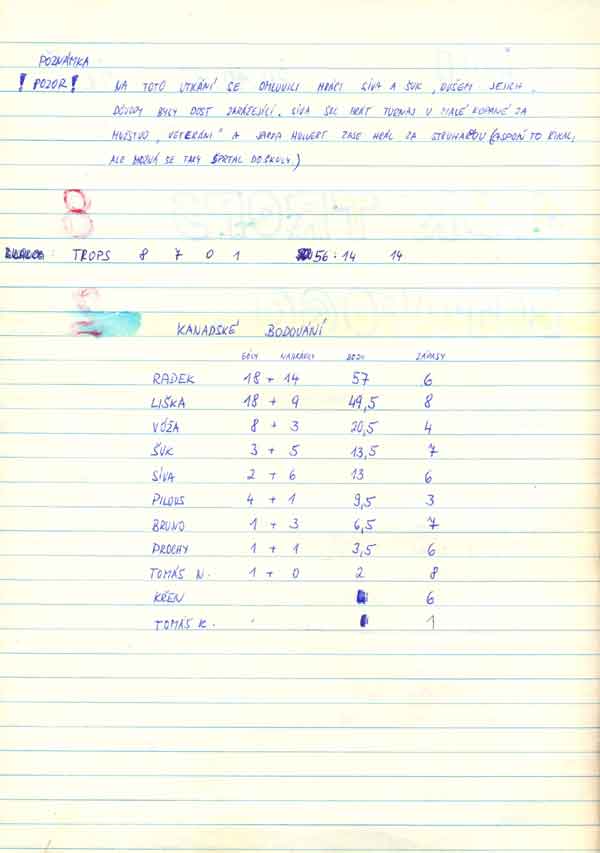 POZNÁMKA
! POZOR! NA TOTO UTKÁNÍ SE OMLUVILI HRÁČI SÍVA A ŠUK, OVŠEM JEJICH
DŮVODY BYLY DOST ZARÁŽEJÍCÍ. SÍVA ŠEL HRÁT TURNAJ V MALÉ KOPANÉ ZA
MUŽSTVO „VETERÁNI" A JARDA ZASE HRÁL ZA (ASPOŇ TO ŘÍKAL,
ALE MOŽNÁ SE TAKY ŠPRTAL DO ŠKOLY.)
8
TROPS 8 7 0 1 56:14 14
KANADSKÉ BODOVÁNÍ
GÓLY NAHRÁVKY BODY ZÁPASY
RADEK 18 + 14 57 6
LIŠKA 18 + 9 49,5 8
VÓŽA 8 + 3 20,5 4
ŠUK 3 + 5 13,5 7
SÍVA 2 + 6 13 6
PILOUS 4 + 1 9,5 3
BRUNO 1 + 3 6,5 7
PROCHY 1 + 1 3,5 6
TOMÁŠ N. 1 + 0 2 8
KŘEN 6
TOMÁŠ K. 1